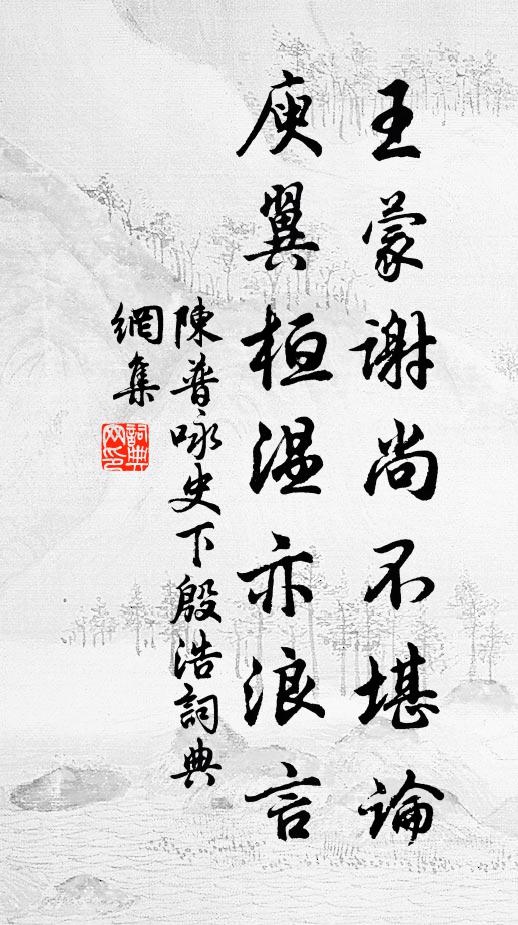 王蒙謝尚不堪論
庾翼桓温亦浪言
陳普咏史下殷浩詞典
網集
詞典
网印